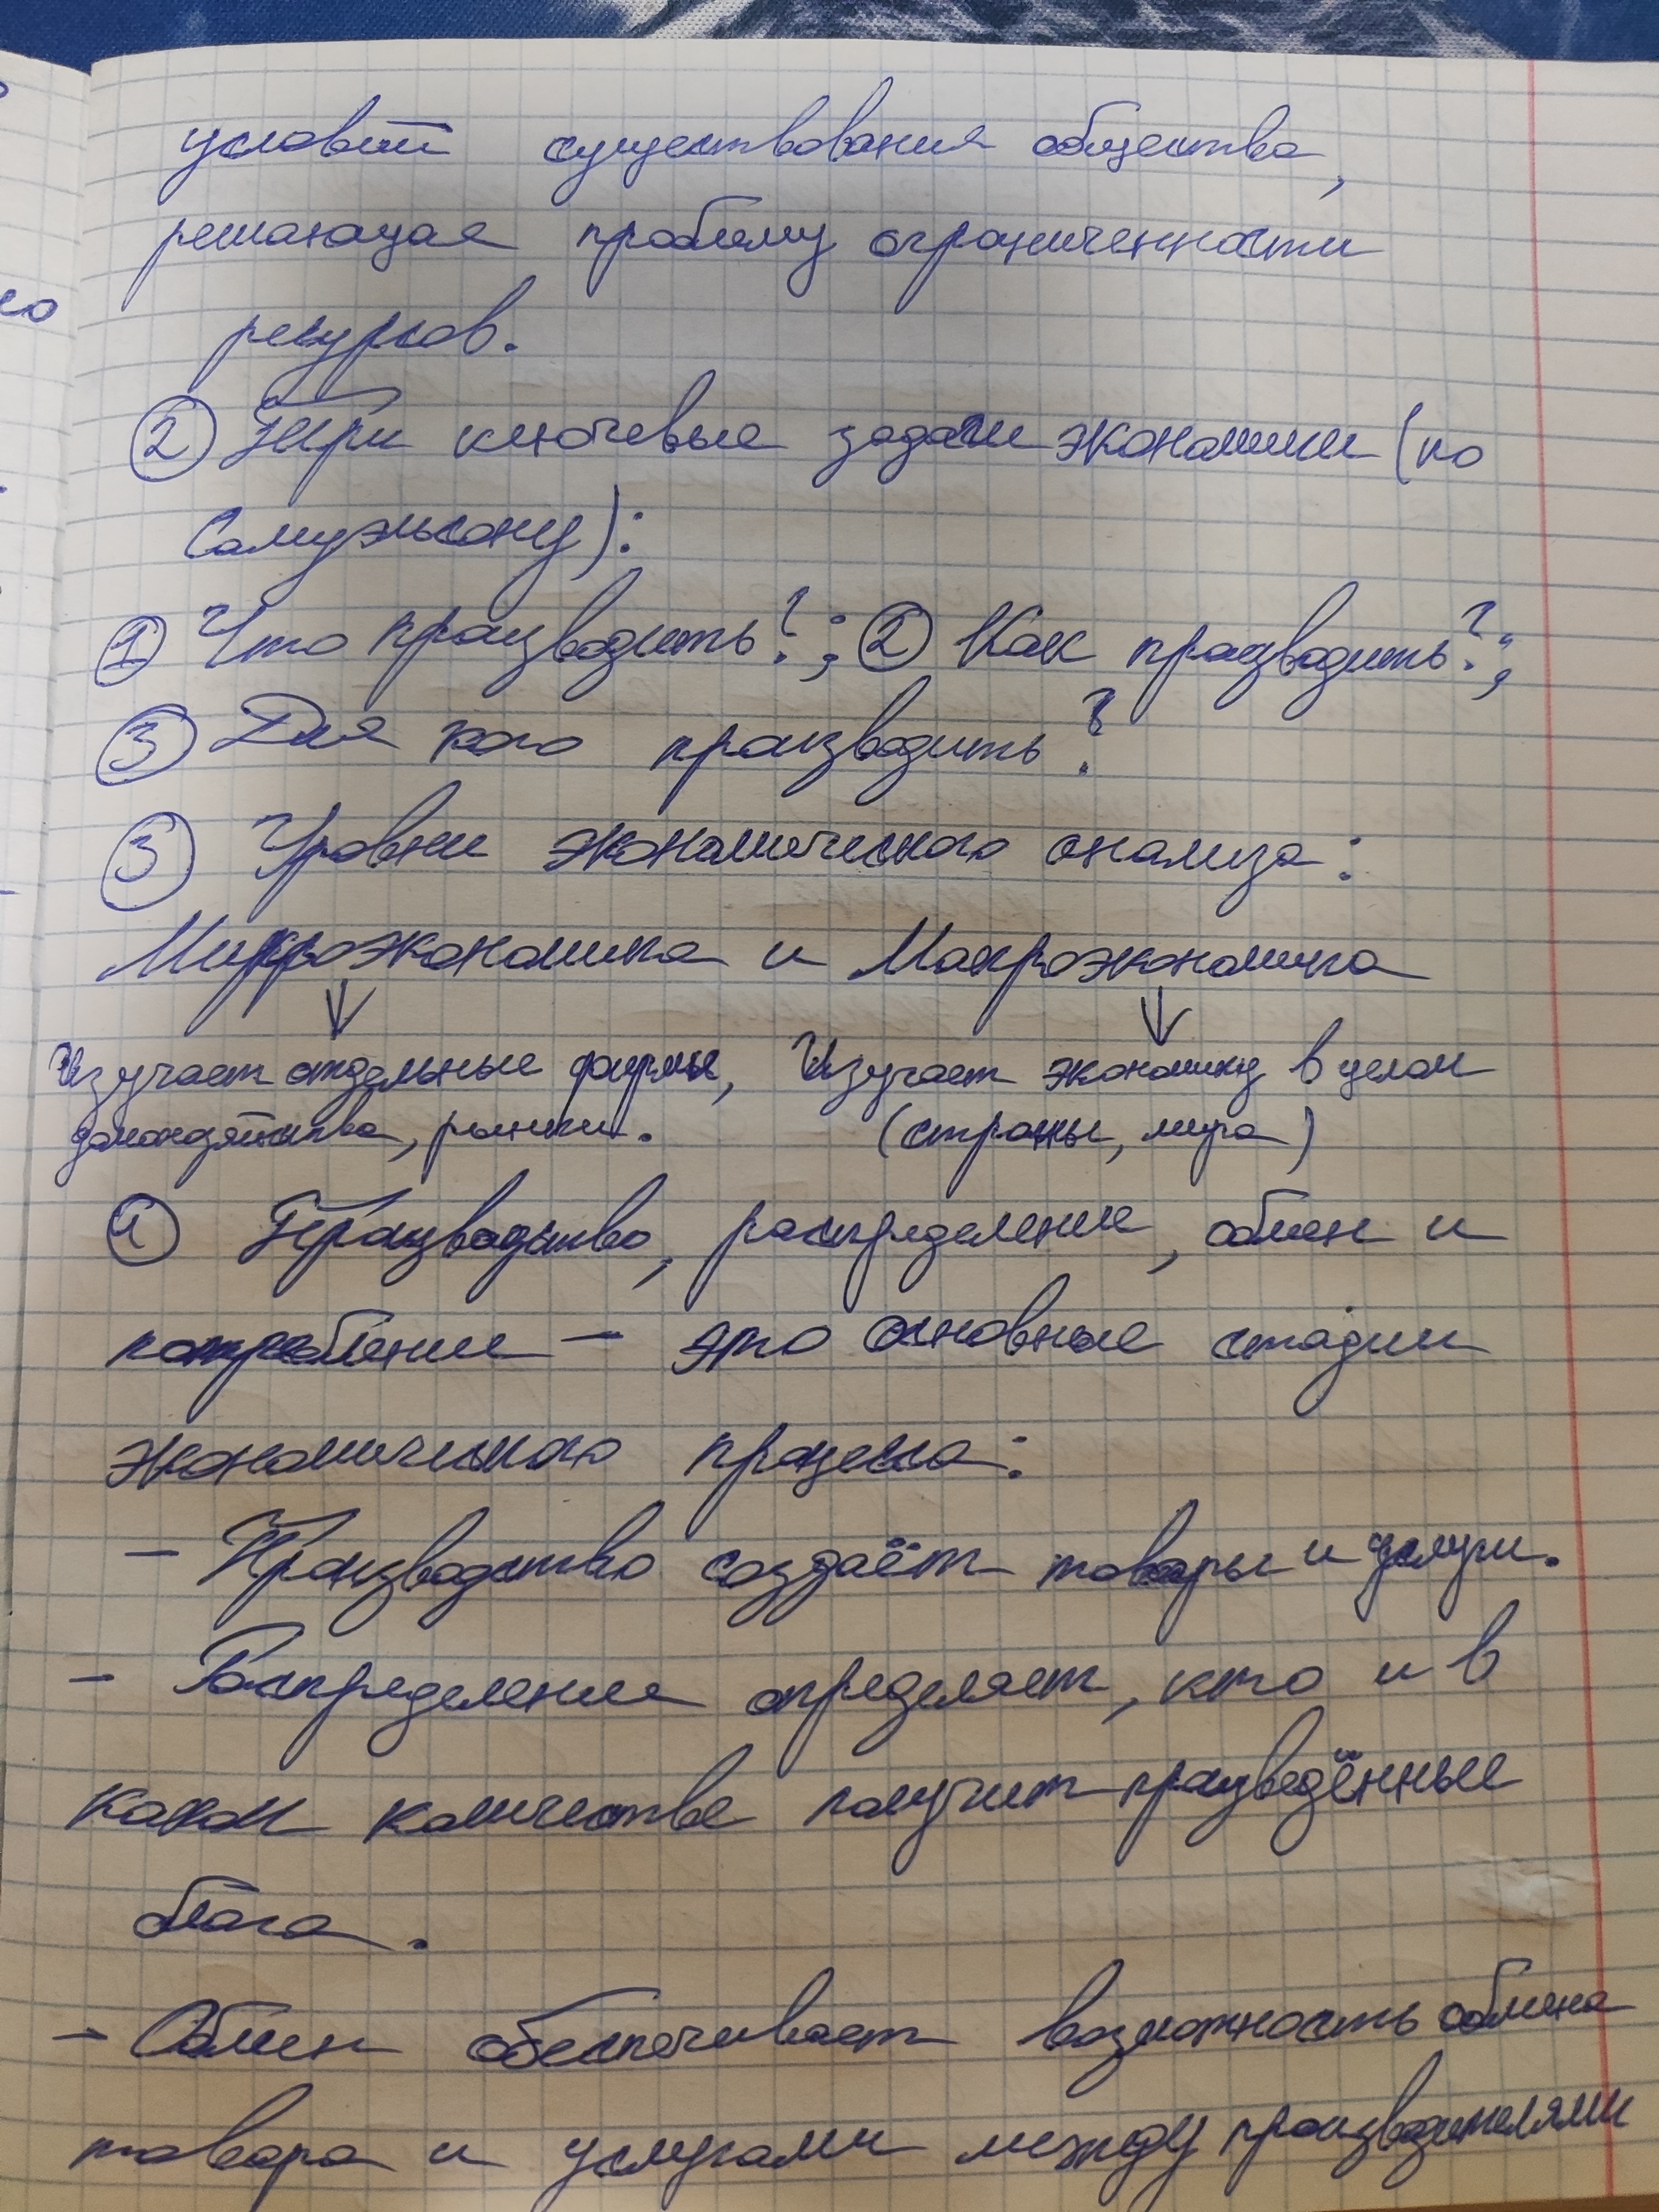 условий существования общества,
решающая проблему ограниченности
ресурсов.
② Три ключевые задачи экономики (по
Самуэльсону):
① Что производить?; ② Как производить?;
③ Для кого производить?
③ Уровни экономического анализа:
Микроэкономика и Макроэкономика
Изучает отдельные фирмы, Изучает экономику в целом
домохозяйства, рынки. (страны, мира)
④ Производство, распределение, обмен и
потребление – это основные стадии
экономического процесса:
– Производство создаёт товары и услуги.
– Распределение определяет, кто и в
каком количестве получит произведённые
блага.
– Обмен обеспечивает возможность обмена
товара и услугами между производителями